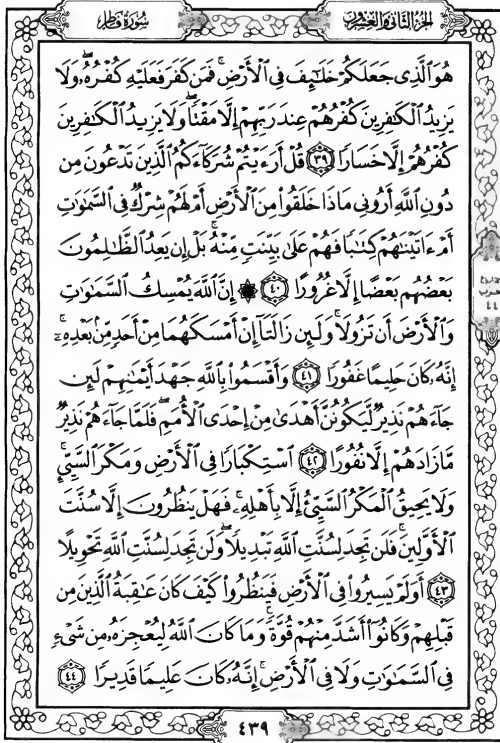 سورة فاطر
الجزء الثاني والعشرون
هُوَ ٱلَّذِى جَعَلَكُمْ خَلَٰٓئِفَ فِى ٱلْأَرْضِ ۚ فَمَن كَفَرَ فَعَلَيْهِ كُفْرُهُۥ ۖ وَلَا
يَزِيدُ ٱلْكَٰفِرِينَ كُفْرُهُمْ عِندَ رَبِّهِمْ إِلَّا مَقْتًا ۖ وَلَا يَزِيدُ ٱلْكَٰفِرِينَ
كُفْرُهُمْ إِلَّا خَسَارًا ٣٩ قُلْ أَرَءَيْتُمْ شُرَكَآءَكُمُ ٱلَّذِينَ تَدْعُونَ مِن
دُونِ ٱللَّهِ أَرُونِى مَاذَا خَلَقُوا۟ مِنَ ٱلْأَرْضِ أَمْ لَهُمْ شِرْكٌ فِى ٱلسَّمَٰوَٰتِ
أَمْ ءَاتَيْنَٰهُمْ كِتَٰبًا فَهُمْ عَلَىٰ بَيِّنَتٍ مِّنْهُ ۚ بَلْ إِن يَعِدُ ٱلظَّٰلِمُونَ
بَعْضُهُم بَعْضًا إِلَّا غُرُورًا ٤٠ ۞ إِنَّ ٱللَّهَ يُمْسِكُ ٱلسَّمَٰوَٰتِ
وَٱلْأَرْضَ أَن تَزُولَا ۚ وَلَئِن زَالَتَآ إِنْ أَمْسَكَهُمَا مِنْ أَحَدٍ مِّنۢ بَعْدِهِۦٓ ۚ
إِنَّهُۥ كَانَ حَلِيمًا غَفُورًا ٤١ وَأَقْسَمُوا۟ بِٱللَّهِ جَهْدَ أَيْمَٰنِهِمْ لَئِن
جَآءَهُمْ نَذِيرٌ لَّيَكُونُنَّ أَهْدَىٰ مِنْ إِحْدَى ٱلْأُمَمِ ۖ فَلَمَّا جَآءَهُمْ نَذِيرٌ
مَّا زَادَهُمْ إِلَّا نُفُورًا ٤٢ ٱسْتِكْبَارًا فِى ٱلْأَرْضِ وَمَكْرَ ٱلسَّيِّئِ ۚ
وَلَا يَحِيقُ ٱلْمَكْرُ ٱلسَّيِّئُ إِلَّا بِأَهْلِهِۦ ۚ فَهَلْ يَنظُرُونَ إِلَّا سُنَّتَ
ٱلْأَوَّلِينَ ۚ فَلَن تَجِدَ لِسُنَّتِ ٱللَّهِ تَبْدِيلًا ۖ وَلَن تَجِدَ لِسُنَّتِ ٱللَّهِ تَحْوِيلًا
٤٣ أَوَلَمْ يَسِيرُوا۟ فِى ٱلْأَرْضِ فَيَنظُرُوا۟ كَيْفَ كَانَ عَٰقِبَةُ ٱلَّذِينَ مِن
قَبْلِهِمْ وَكَانُوٓا۟ أَشَدَّ مِنْهُمْ قُوَّةً ۚ وَمَا كَانَ ٱللَّهُ لِيُعْجِزَهُۥ مِن شَىْءٍ
فِى ٱلسَّمَٰوَٰتِ وَلَا فِى ٱلْأَرْضِ ۚ إِنَّهُۥ كَانَ عَلِيمًا قَدِيرًا ٤٤
حزب
٤٤
٤٣٩